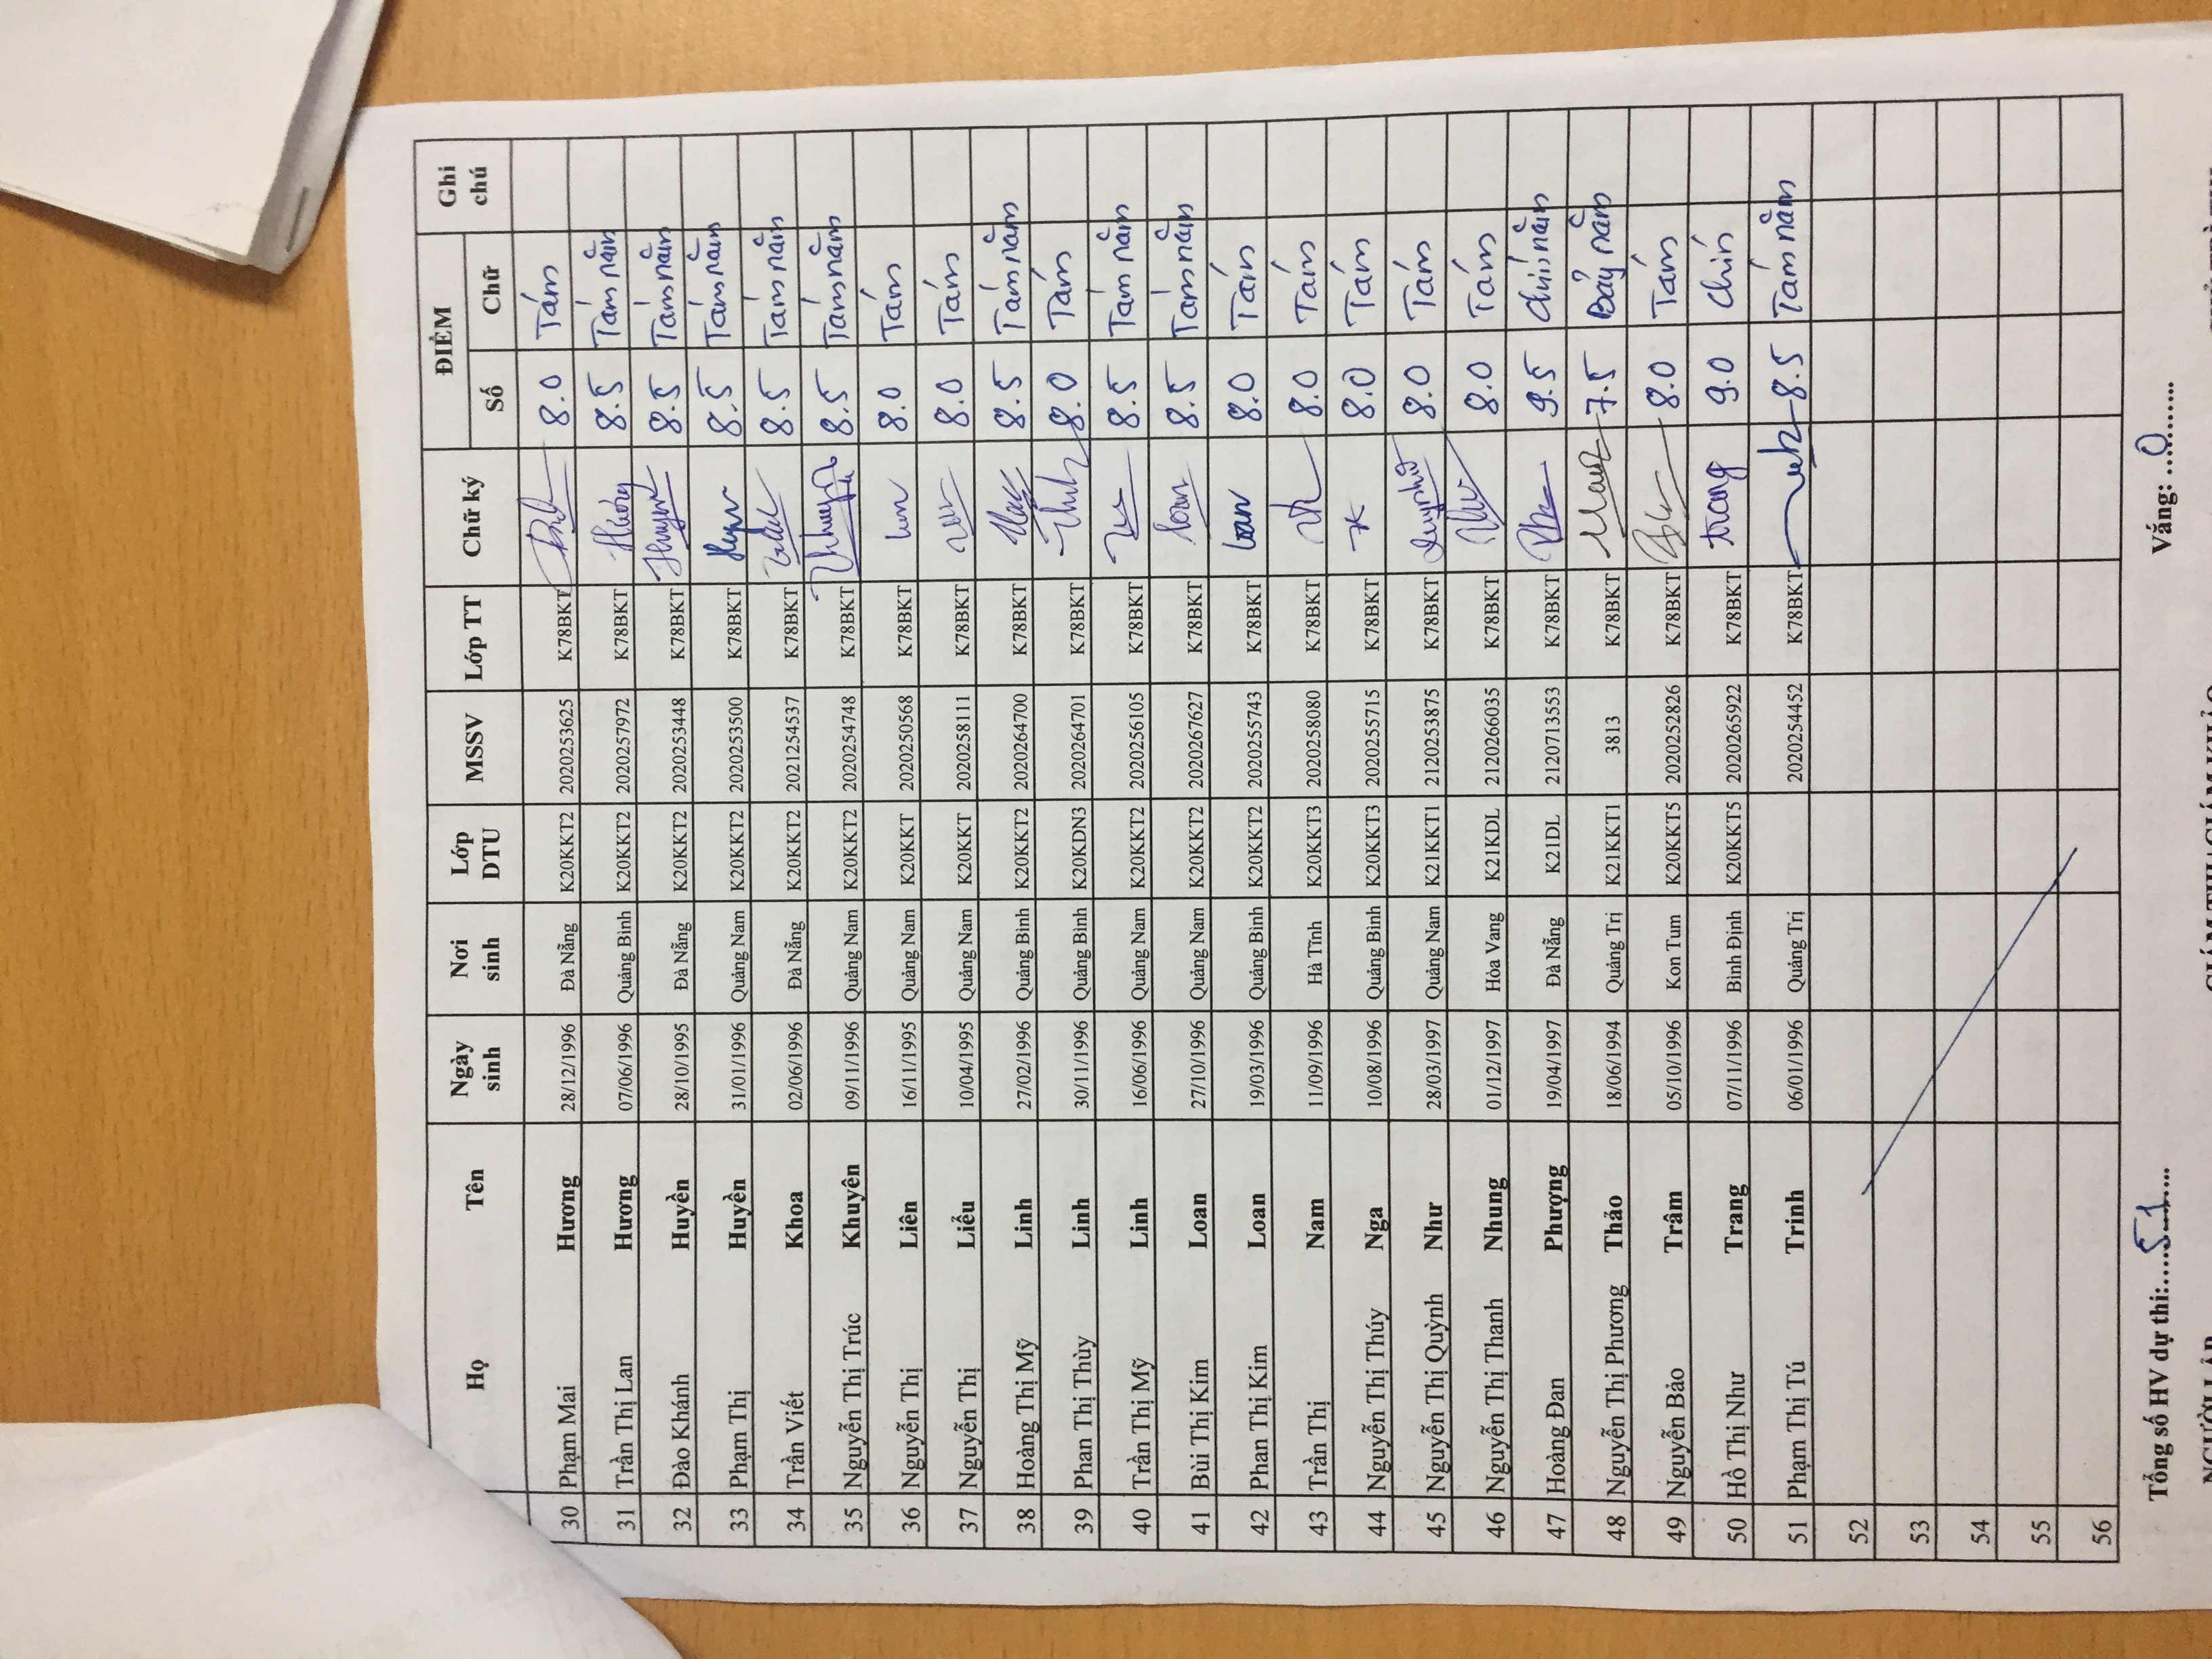 Họ Tên Ngày sinh Nơi sinh Lớp DTU MSSV Lớp TT Chữ ký ĐIỂM Số Chữ Ghi chú
30 Phạm Mai Hương 28/12/1996 Đà Nẵng K20KKT2 2020253625 K78BKT 8.0 Tám
31 Trần Thị Lan Hương 07/06/1996 Quảng Bình K20KKT2 2020257972 K78BKT Hương 8.5 Tám năm
32 Đào Khánh Huyền 28/10/1995 Đà Nẵng K20KKT2 2020253448 K78BKT Huyền 8.5 Tám năm
33 Phạm Thị Huyền 31/01/1996 Quảng Nam K20KKT2 2020253500 K78BKT 8.5 Tám năm
34 Trần Viết Khoa 02/06/1996 Đà Nẵng K20KKT2 2021254537 K78BKT 8.5 Tám năm
35 Nguyễn Thị Trúc Khuyên 09/11/1996 Quảng Nam K20KKT2 2020254748 K78BKT 8.5 Tám năm
36 Nguyễn Thị Liên 16/11/1995 Quảng Nam K20KKT 2020250568 K78BKT 8.0 Tám
37 Nguyễn Thị Liễu 10/04/1995 Quảng Nam K20KKT 2020258111 K78BKT 8.0 Tám
38 Hoàng Thị Mỹ Linh 27/02/1996 Quảng Bình K20KKT2 2020264700 K78BKT 8.5 Tám năm
39 Phan Thị Thùy Linh 30/11/1996 Quảng Bình K20KDN3 2020264701 K78BKT 8.0 Tám
40 Trần Thị Mỹ Linh 16/06/1996 Quảng Nam K20KKT2 2020256105 K78BKT 8.5 Tám năm
41 Bùi Thị Kim Loan 27/10/1996 Quảng Nam K20KKT2 2020267627 K78BKT loan 8.5 Tám năm
42 Phan Thị Kim Loan 19/03/1996 Quảng Bình K20KKT2 2020255743 K78BKT loan 8.0 Tám
43 Trần Thị Nam 11/09/1996 Hà Tĩnh K20KKT3 2020258080 K78BKT 8.0 Tám
44 Nguyễn Thị Thúy Nga 10/08/1996 Quảng Bình K20KKT3 2020255715 K78BKT 8.0 Tám
45 Nguyễn Thị Quỳnh Như 28/03/1997 Quảng Nam K21KKT1 2120253875 K78BKT Quynhư 8.0 Tám
46 Nguyễn Thị Thanh Nhung 01/12/1997 Hòa Vang K21KDL 2120266035 K78BKT 8.0 Tám
47 Hoàng Đan Phượng 19/04/1997 Đà Nẵng K21DL 2120713553 K78BKT 9.5 Chín năm
48 Nguyễn Thị Phương Thảo 18/06/1994 Quảng Trị K21KKT1 3813 K78BKT 7.5 Bảy năm
49 Nguyễn Bảo Trâm 05/10/1996 Kon Tum K20KKT5 2020252826 K78BKT 8.0 Tám
50 Hồ Thị Như Trang 07/11/1996 Bình Định K20KKT5 2020265922 K78BKT trang 9.0 Chín
51 Phạm Thị Tú Trinh 06/01/1996 Quảng Trị 2020254452 K78BKT 8.5 Tám năm
52
53
54
55
56
Tổng số HV dự thi:.....51...... Vắng: ...0........